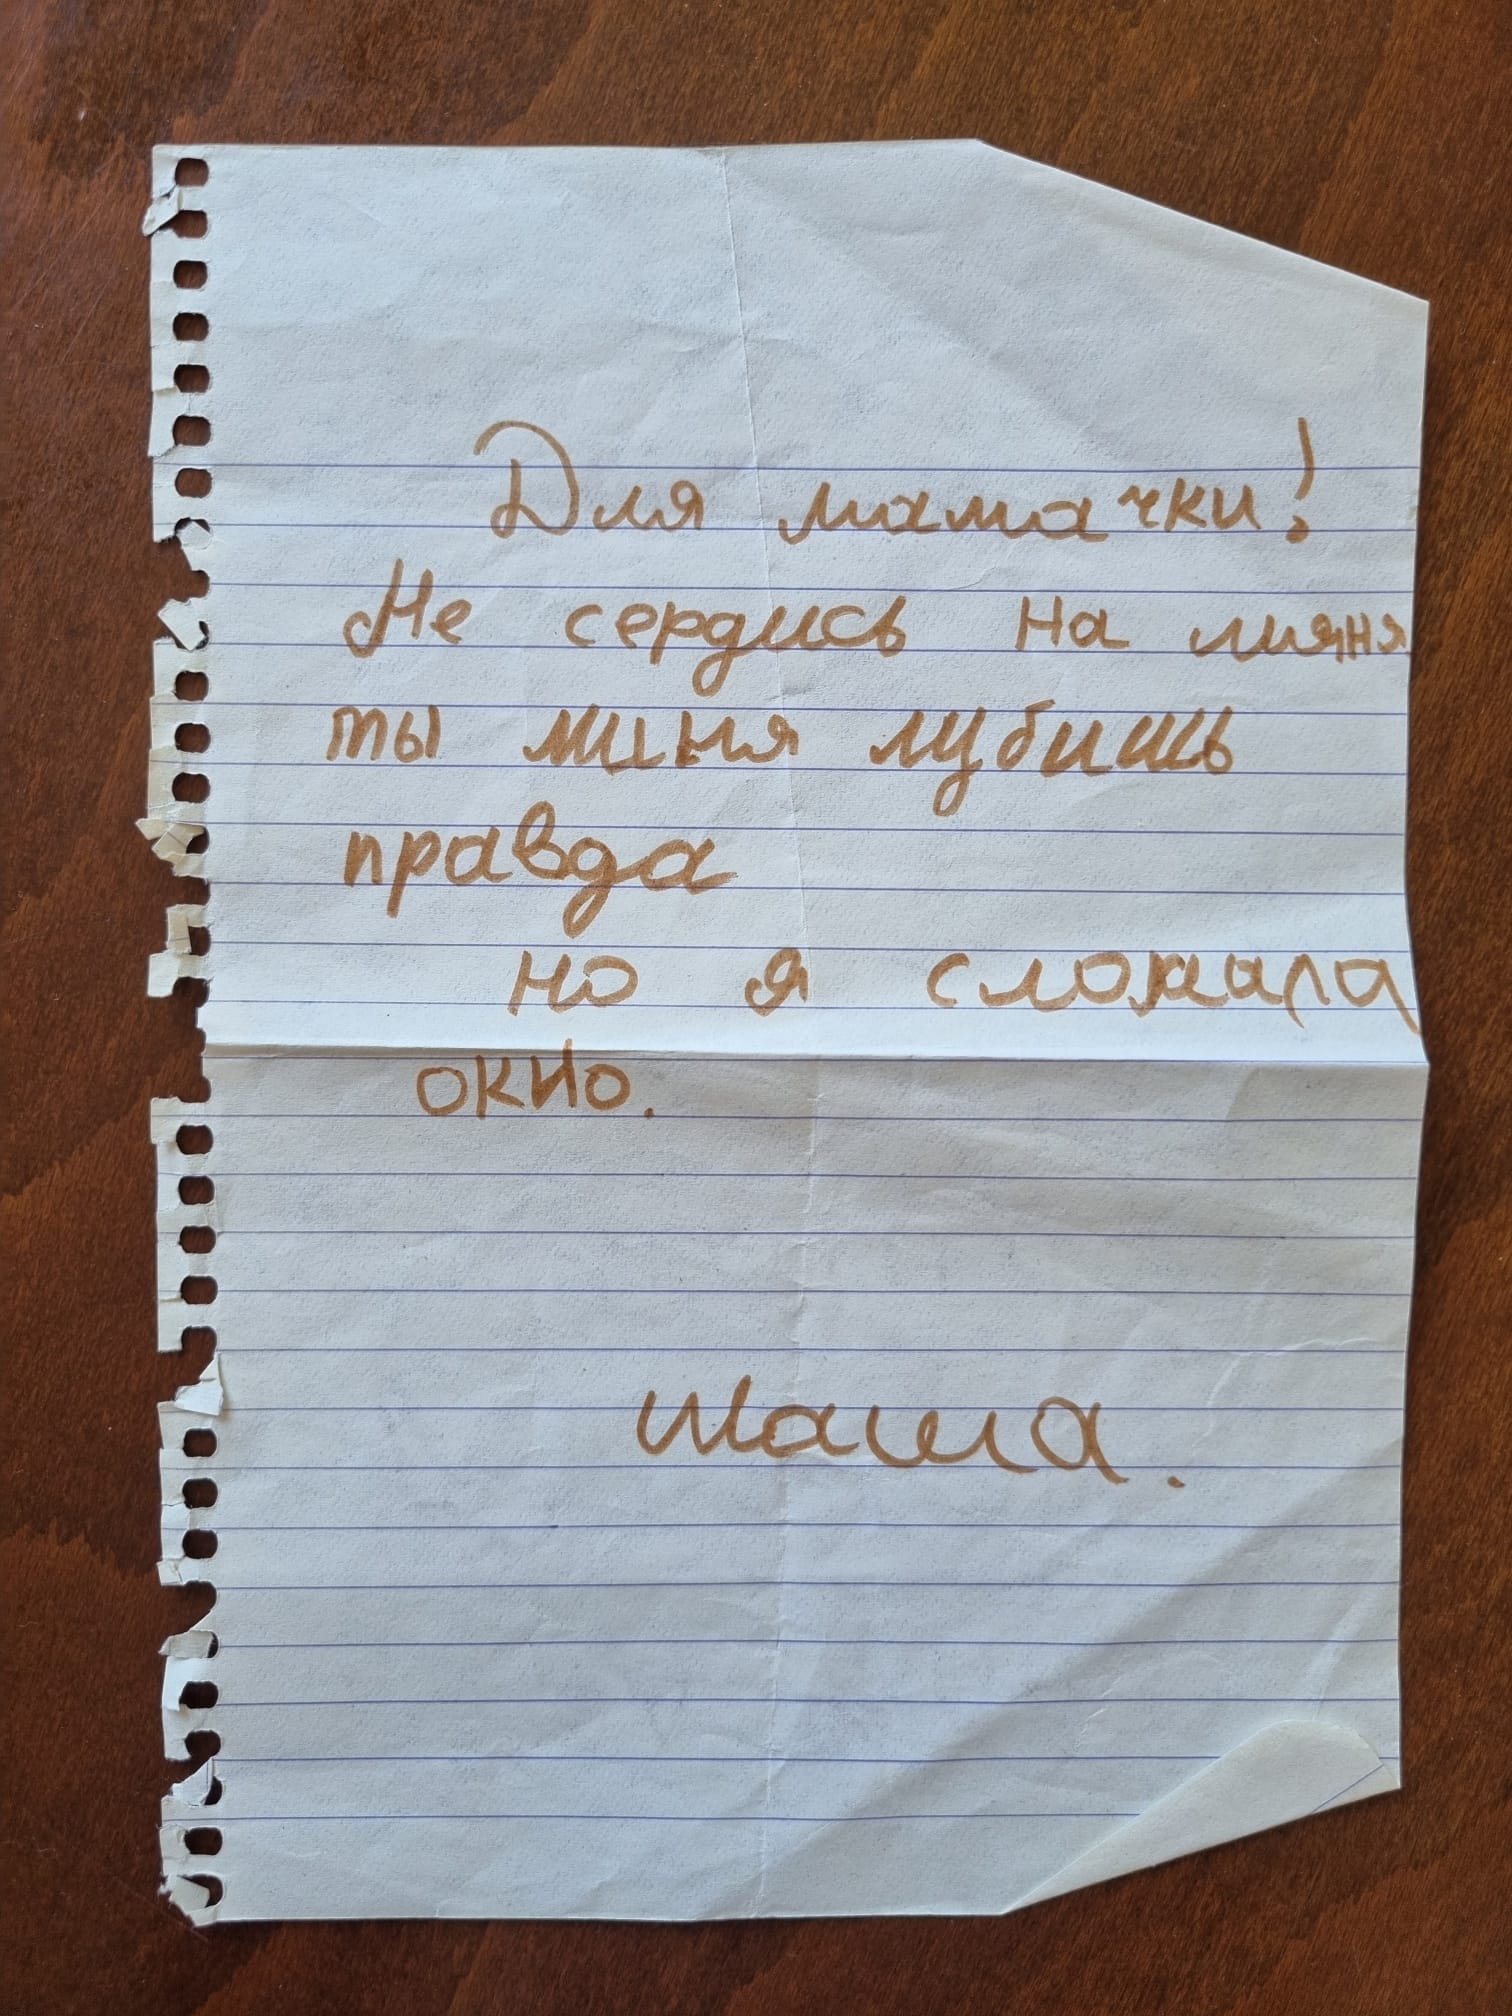 Для мамачки!
Не сердись на миня
ты миня лубишь
правда
но я сломала
окно.
Маша.